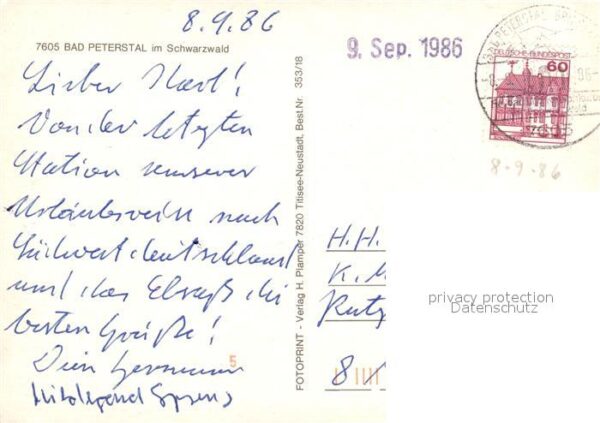 8.9.86
7605 BAD PETERSTAL im Schwarzwald
Lieber Karl!
Von der letzten
Station unserer
Urlaubsreise nach
Südwestdeutschland
und das Elsaß die
besten Grüße!
Dein Hermann
Hildegard
5
FOTOPRINT - Verlag H. Plamper 7820 Titisee-Neustadt, Best.Nr. 353/18
9. Sep. 1986
DEUTSCHE BUNDESPOST
60
BAD PETERSTAL
8-9-86
H.H.
K. M
8
privacy protection
Datenschutz